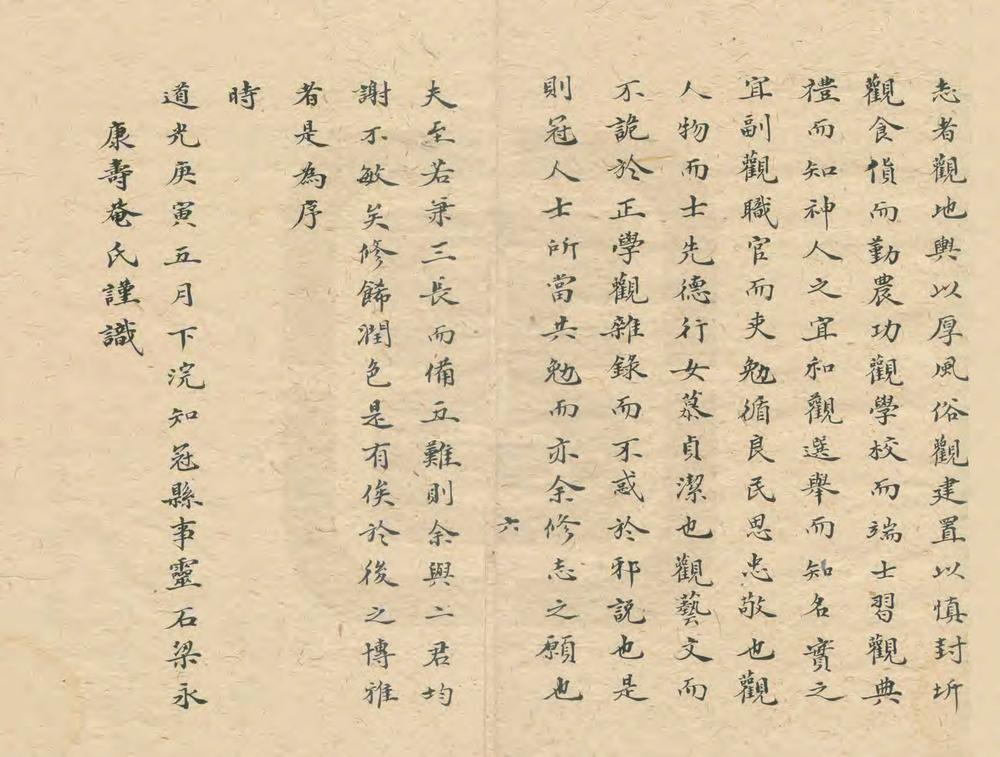 志者觀地輿以厚風俗觀建置以慎封圻
觀食貨而勤農功觀學校而端士習觀典
禮而知神人之宜和觀選舉而知名實之
宜副觀職官而吏勉循良民思忠敬也觀
人物而士先德行女慕貞潔也觀藝文而
不詭於正學觀雜錄而不惑於邪說也是
則冠人士所當共勉而亦余修志之願也
六
夫至若兼三長而備五難則余與二君均
謝不敏矣修餙潤色是有俟於後之博雅
者是為序
時
道光庚寅五月下浣知冠縣事靈石梁永
康壽菴氏謹識